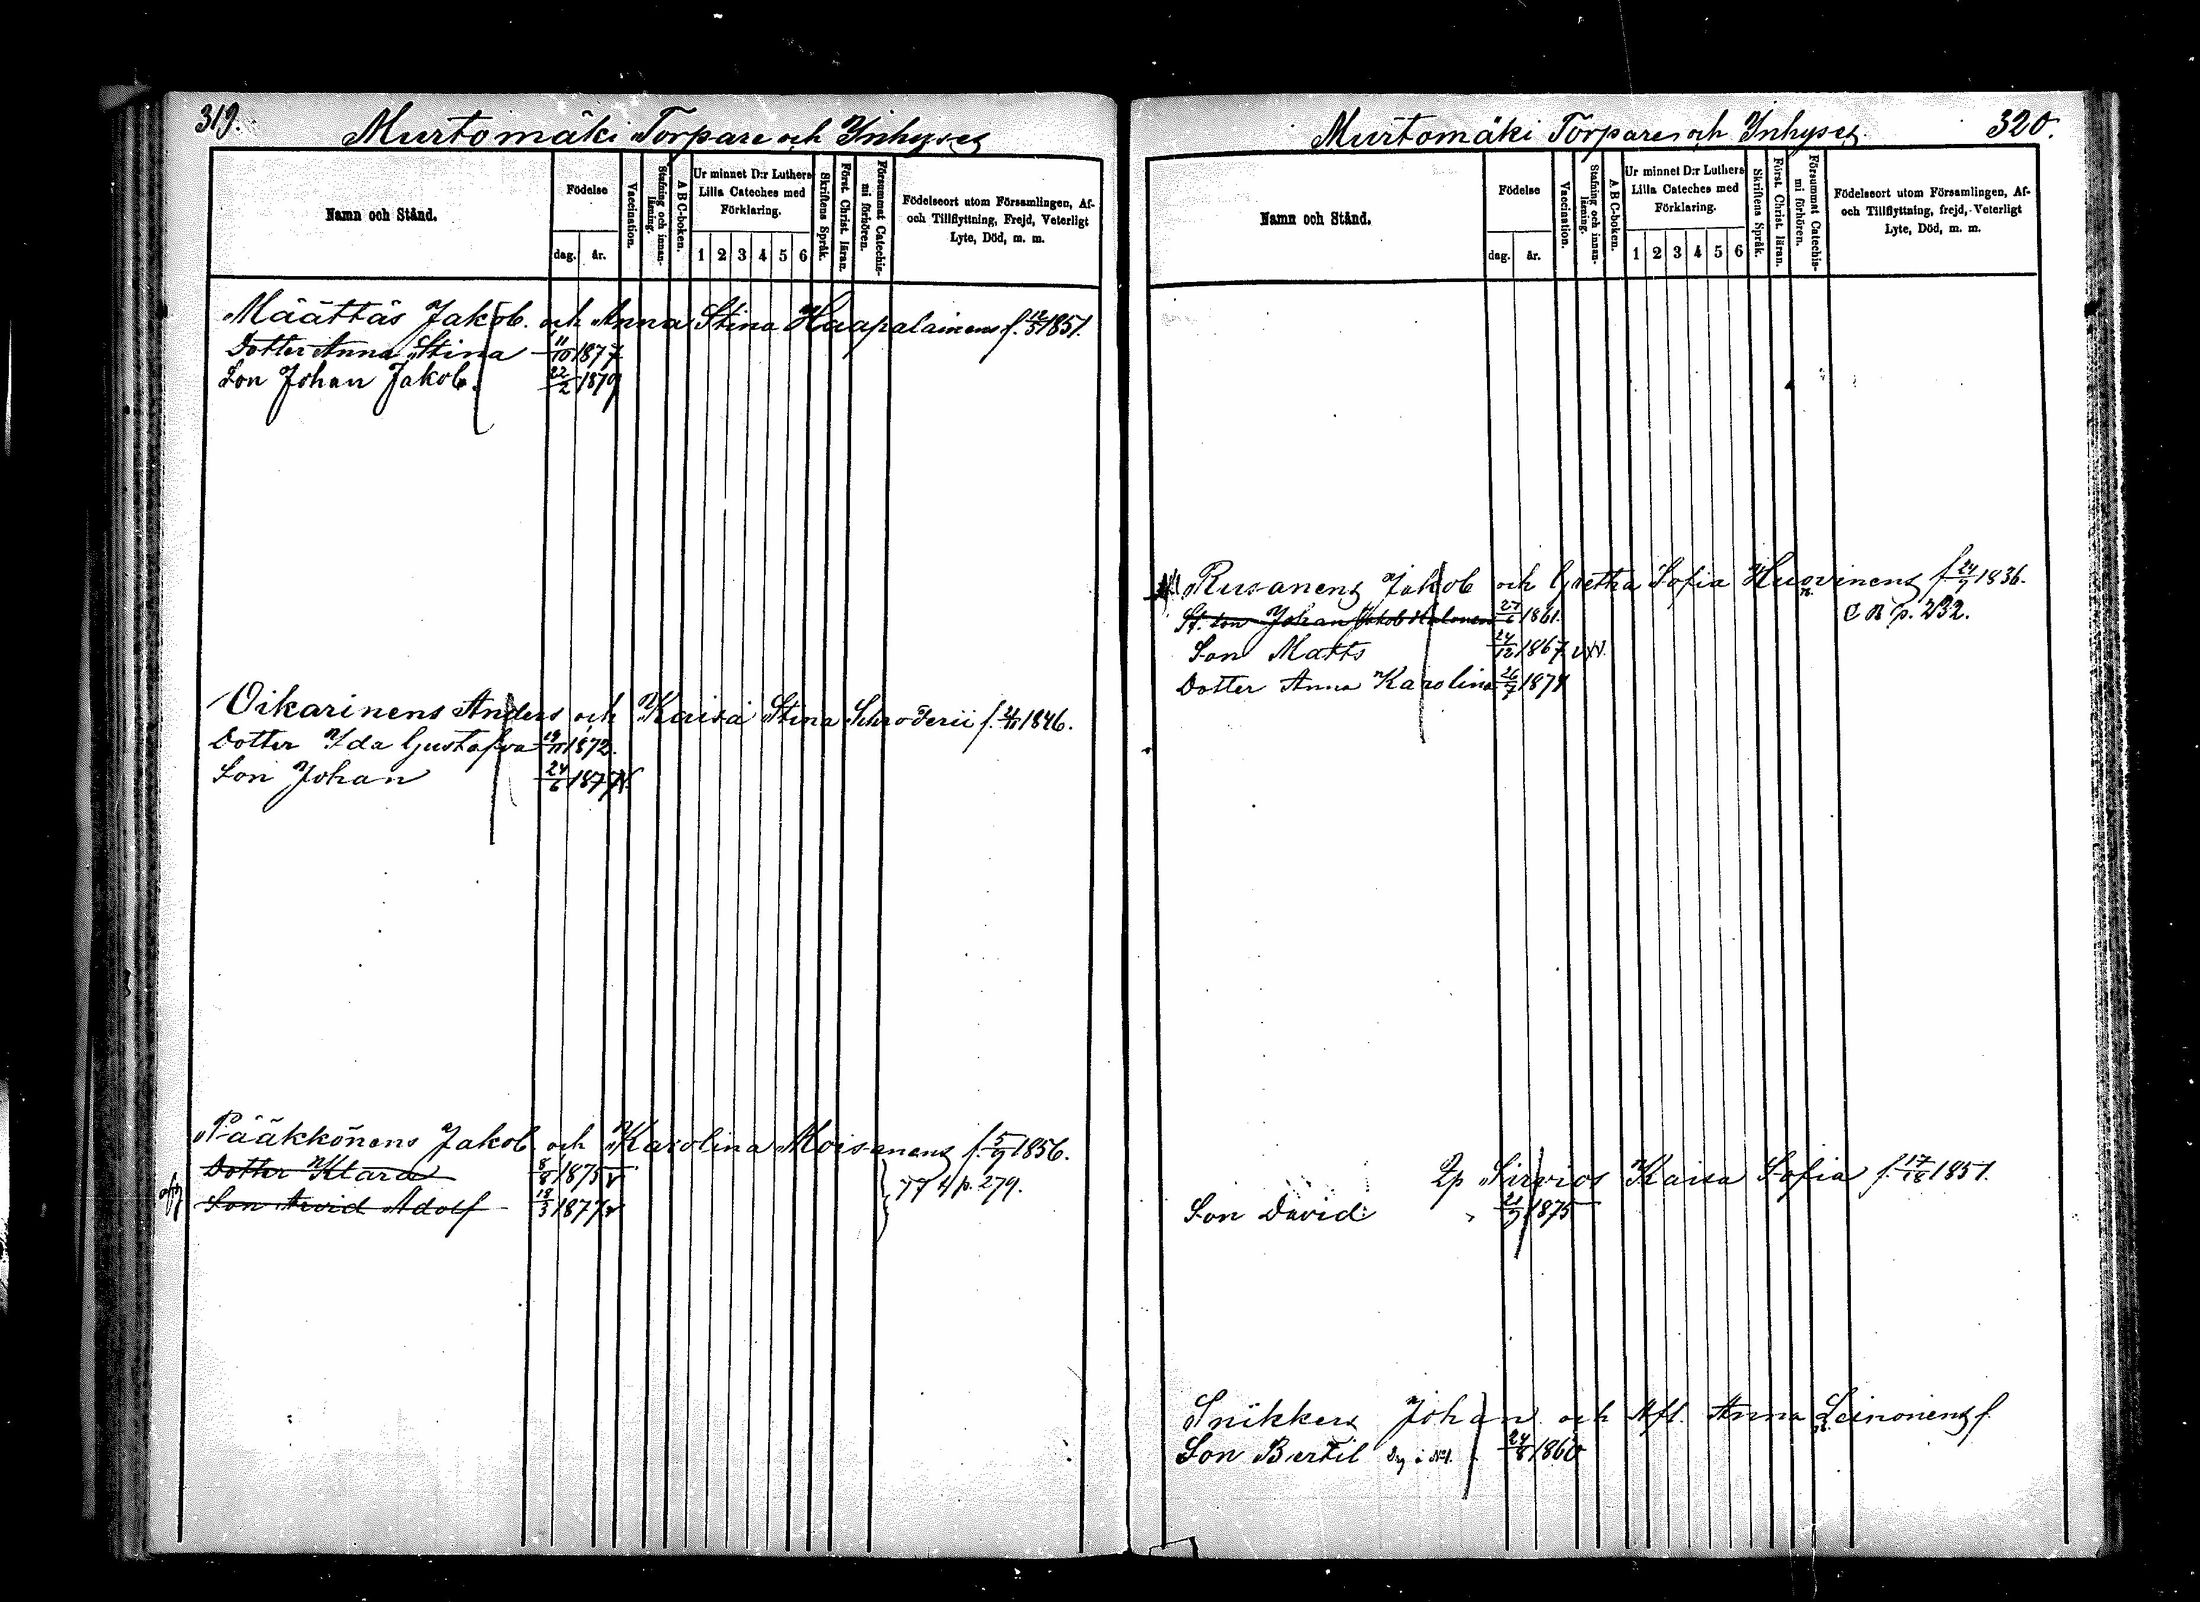 319.
Murtomäki Torpare och Inhyses
Namn och Stånd.
Födelse
dag.
år.
Vaccination.
Stafning och innan-
läsning.
A B C-boken.
Ur minnet D:r Luthers
Lilla Cateches med
Förklaring.
1 2 3 4 5 6
Skriftens Språk.
Först. Christ. läran.
Försummat Catechis-
mi förhören.
Födelseort utom Församlingen, Af-
och Tillflyttning, Frejd, Veterligt
Lyte, Död, m. m.
Määttäs Jakob. och Anna Stina Haapalainens f. 12/5 1851.
Dotter Anna Stina 11/10 1877
Son Johan Jakob. 22/2 1879
Oikarinens Anders och Kaisa Stina Schroderii f. 1846.
Dotter Ida Gustafva 1872.
Son Johan 24/6 1877
Pääkkönens Jakob och Karolina Moisanens f. 5/9 1856.
Dotter Klara 8/8 1875 v
Son Arvid Adolf 18/3 1877 v
p. 279.
320.
Murtomäki Torpare och Inhyses.
Namn och Stånd.
Födelse
dag.
år.
Vaccination.
Stafning och innan-
läsning.
A B C-boken.
Ur minnet D:r Luthers
Lilla Cateches med
Förklaring.
1 2 3 4 5 6
Skriftens Språk.
Först. Christ. läran.
Försummat Catechis-
mi förhören.
Födelseort utom Församlingen, Af-
och Tillflyttning, frejd, Veterligt
Lyte, Död, m. m.
Rusanens Jakob och Gretha Sofia Huovinens f. 24/9 1836.
St. son Johan Jakob 27/6 1861.
p. 232.
Son Matts 24/12 1867
Dotter Anna Karolina 1871
Qp Sirviös Kaisa Sofia f. 1851.
Son David 1875
Snikkers Johan och Afl. Anna Leinonens f.
Son Bertil 24/8 1860